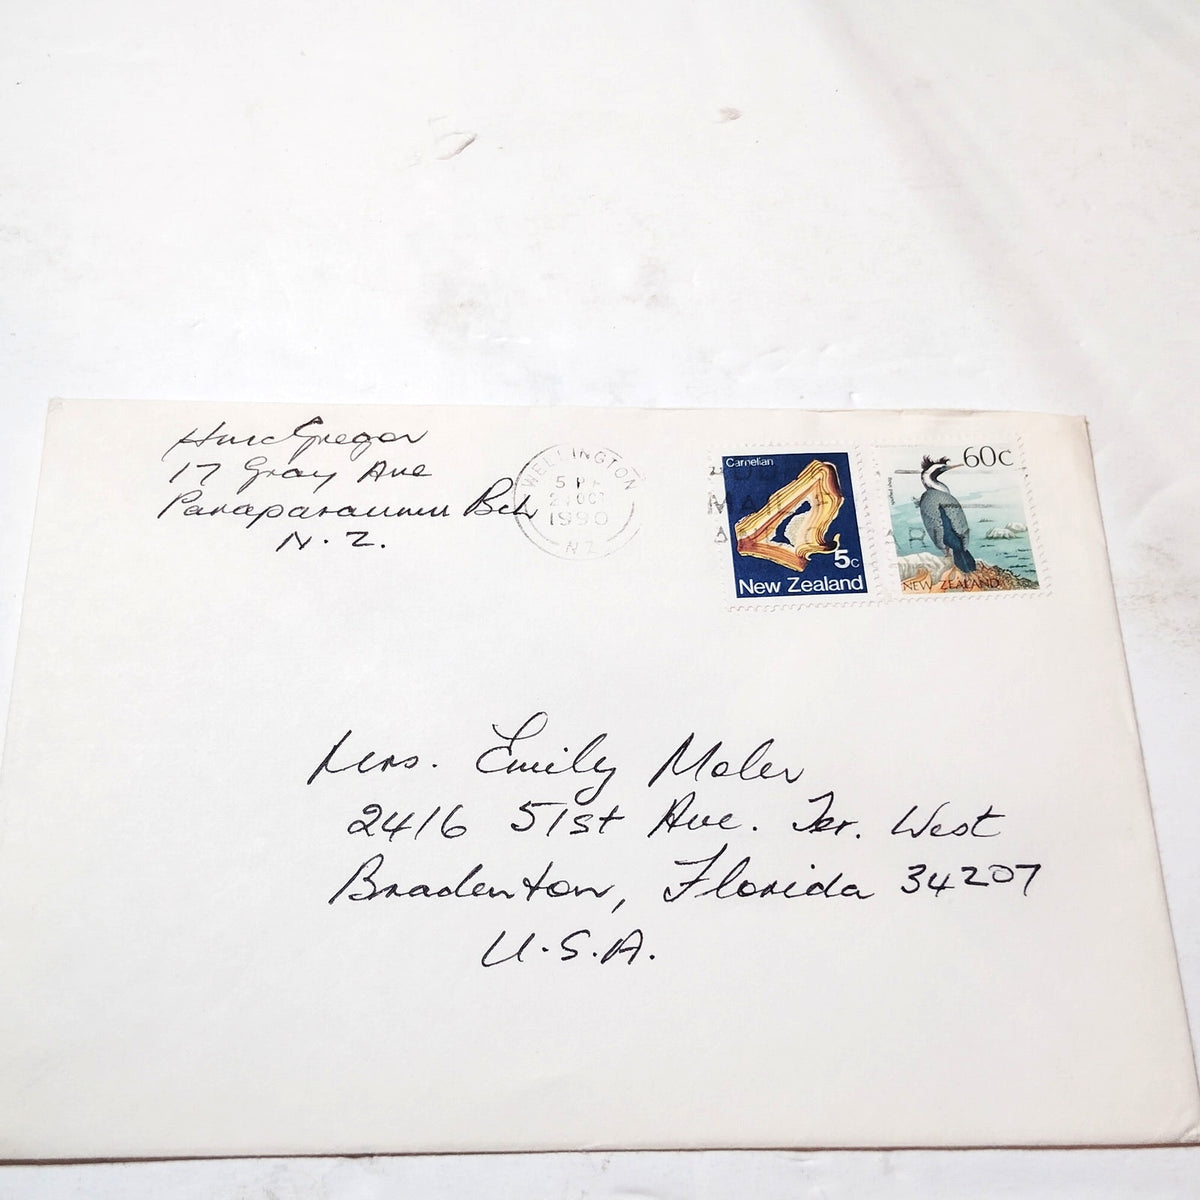 HMacGregor
17 Gray Ave
Paraparaumu Bch
N.Z.
WELLINGTON
5 PM
OCT
1990
NZ
Carnelian
MAIL
5c
New Zealand
60c
NEW ZEALAND
Mrs. Emily Moler
2416 51st Ave. Ter. West
Bradenton, Florida 34207
U.S.A.